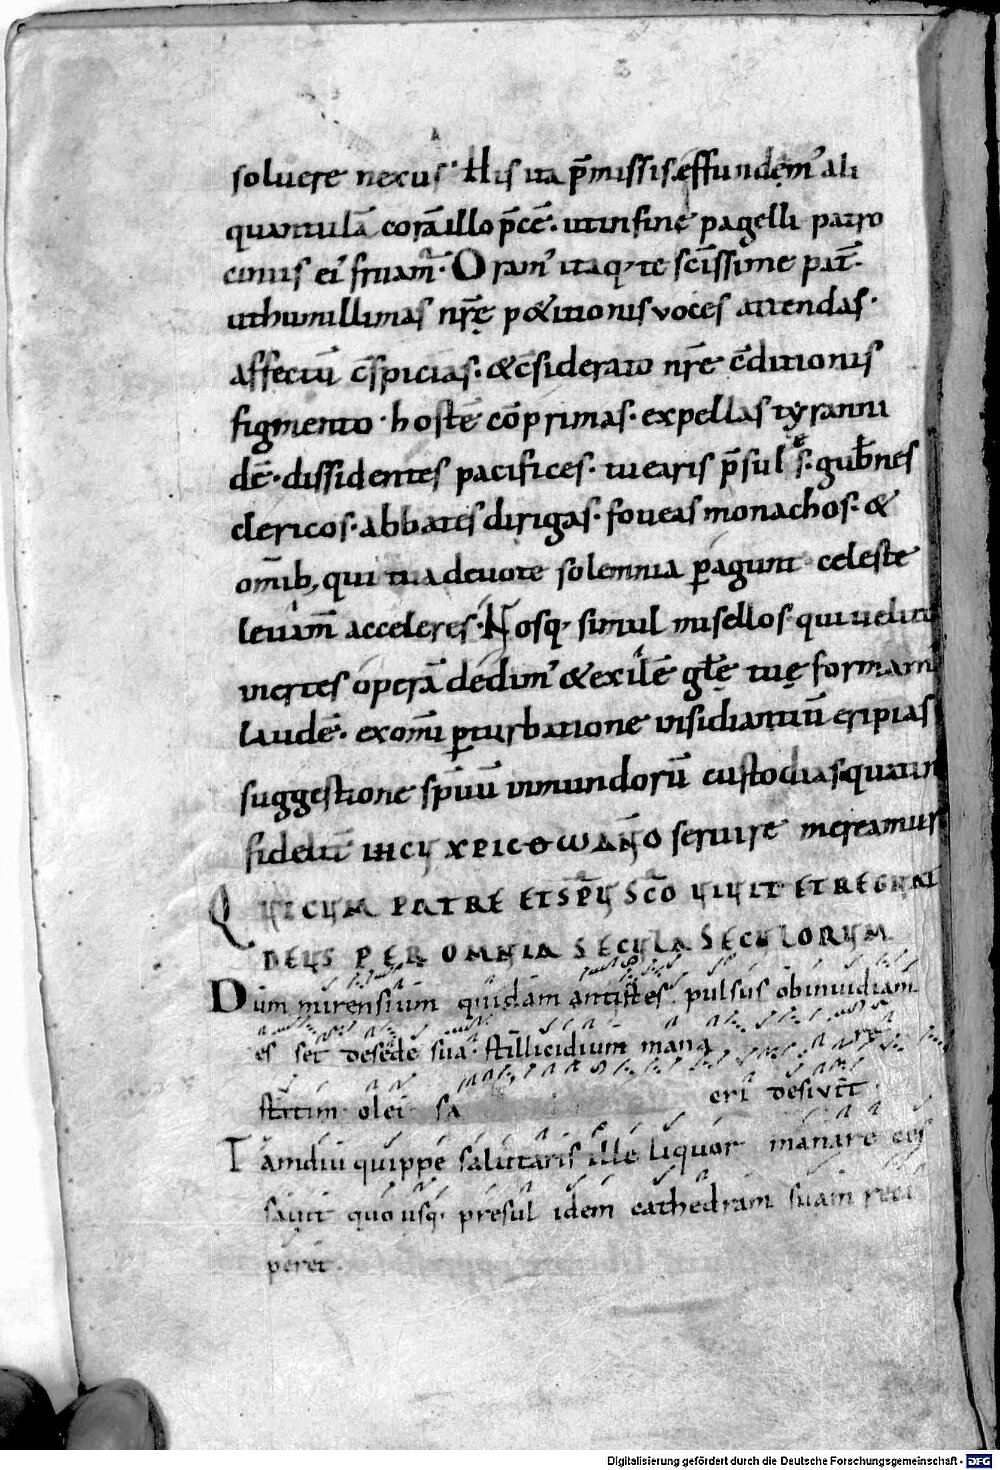 soluere nexus. His ita p̄missis. effundem᾽ ali
quantulā corā illo p̄cē. ut in fine pagelli patro
cinus ei᾽ fruam̄. Oram᾽ itaq; te sc̄issime pat̄.
ut humillimas nr̄ę p&itionis voces attendas.
affectū c̄spicias. & c̄siderato nr̄e c̄ditionis
figmento. hostē cōprimas. expellas tyranni
dē. dissidentes pacifices. tuearis p̄sules. gub̄nes
clericos. abbates dirigas. foueas monachos. &
om̄ib; qui tua deuote solemnia ꝑagunt celeste
leuam̄ acceleres. Nosq; simul misellos qui uel in
uertes operā dedim᾽ & exilē gl̄ę tuę formam᾽
laudē. ex om̄i ꝑturbatione insidiantiū eripias
suggestione sp̄uū inmundorū custodias quatin᾽
fidelit̄ IHCY XPICTO DN̄O seruire mereamur
QVI CVM PATRE ET SP̄V SC̄O VIVIT ET REGNAT
DEVS PER OMNIA SECVLA SECVLORVM
Dum mirensium quidam antistes pulsus ob inuidiam
es set de sede sua. stillicidium mana
statim olei sa cri desiuit.
Tamdiu quippe salutaris ille liquor manare ces
sauit quo usq; presul idem cathedram suam reci
peret.
Digitalisierung gefördert durch die Deutsche Forschungsgemeinschaft - DFG